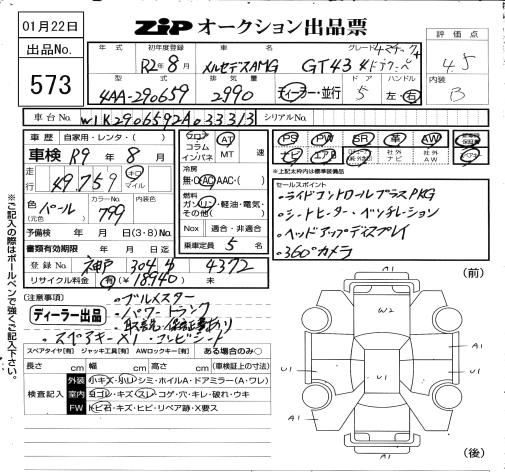 01月22日
出品No.
573
ZIP オークション出品票
年式 初年度登録 車名 グレード 4マチック+
R2年8月 メルセデスAMG GT43 4ドアクーペ
型式 排気量 ドア ハンドル
4AA-290659 2990 ディーラー・並行 5 左・右
評価点
4.5
内装
B
車台No. W1K2906592A033313 シリアルNo.
車歴 自家用・レンタ・( )
車検 R9年8月
走行 49,759 キロ マイル
色 (元色) パール カラーNo. 799 内装色
予備検 年 月 日(3・8)No.
書類有効期限 年 月 日迄
登録No. 神戸 304 4372
リサイクル料金 有(¥18940) 未
フロア コラム インパネ AT MT 速
冷房
無・AC・AAC・( )
燃料
ガソリン・軽油・電気・その他( )
Nox 適合・非適合
乗車定員 5 名
PS PW SR 革 AW
ナビ エアB 社外ナビ 社外AW
★上記太枠内は標準装備品
セールスポイント
・ライドコントロールプラスPKG
・シートヒーター・ベンチレーション
・ヘッドアップディスプレイ
・360°カメラ
(注意事項)
ディーラー出品
・ブルメスター
・パワートランク
・取説・保証書あり
・スペアキー×1・コンビシート
スペアタイヤ[有] ジャッキ工具[有] AWロックキー[有] ある場合のみ○
長さ cm 幅 cm 高さ cm (車検証上の寸法)
検査記入
外装 小キズ・小U・シミ・ホイルA・ドアミラー(A・ワレ)
室内 ヨゴレ・キズ・スレ・コゲ・穴・キレ・破れ・ウキ
FW トビ石・キズ・ヒビ・リペア跡・X要ス
※ご記入の際はボールペンで強くご記入下さい。
(前)
A1
W2
U1
U1
A1
A1
A1
(後)